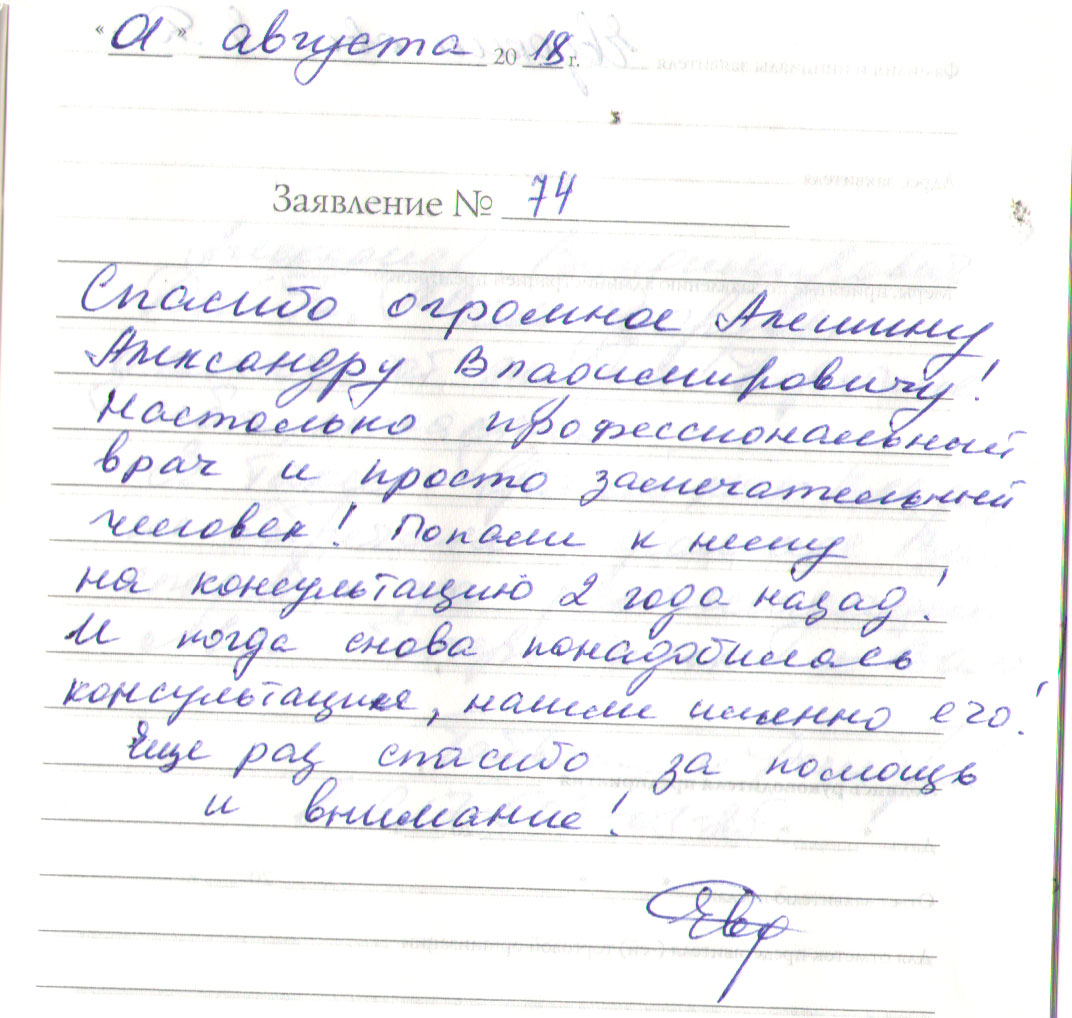 «01» августа 2018 г.
Заявление № 74
Спасибо огромное Алешину
Александру Владимировичу!
Настолько профессиональный
врач и просто замечательный
человек! Попали к нему
на консультацию 2 года назад!
И когда снова понадобилась
консультация, нашли именно его!
Еще раз спасибо за помощь
и внимание!